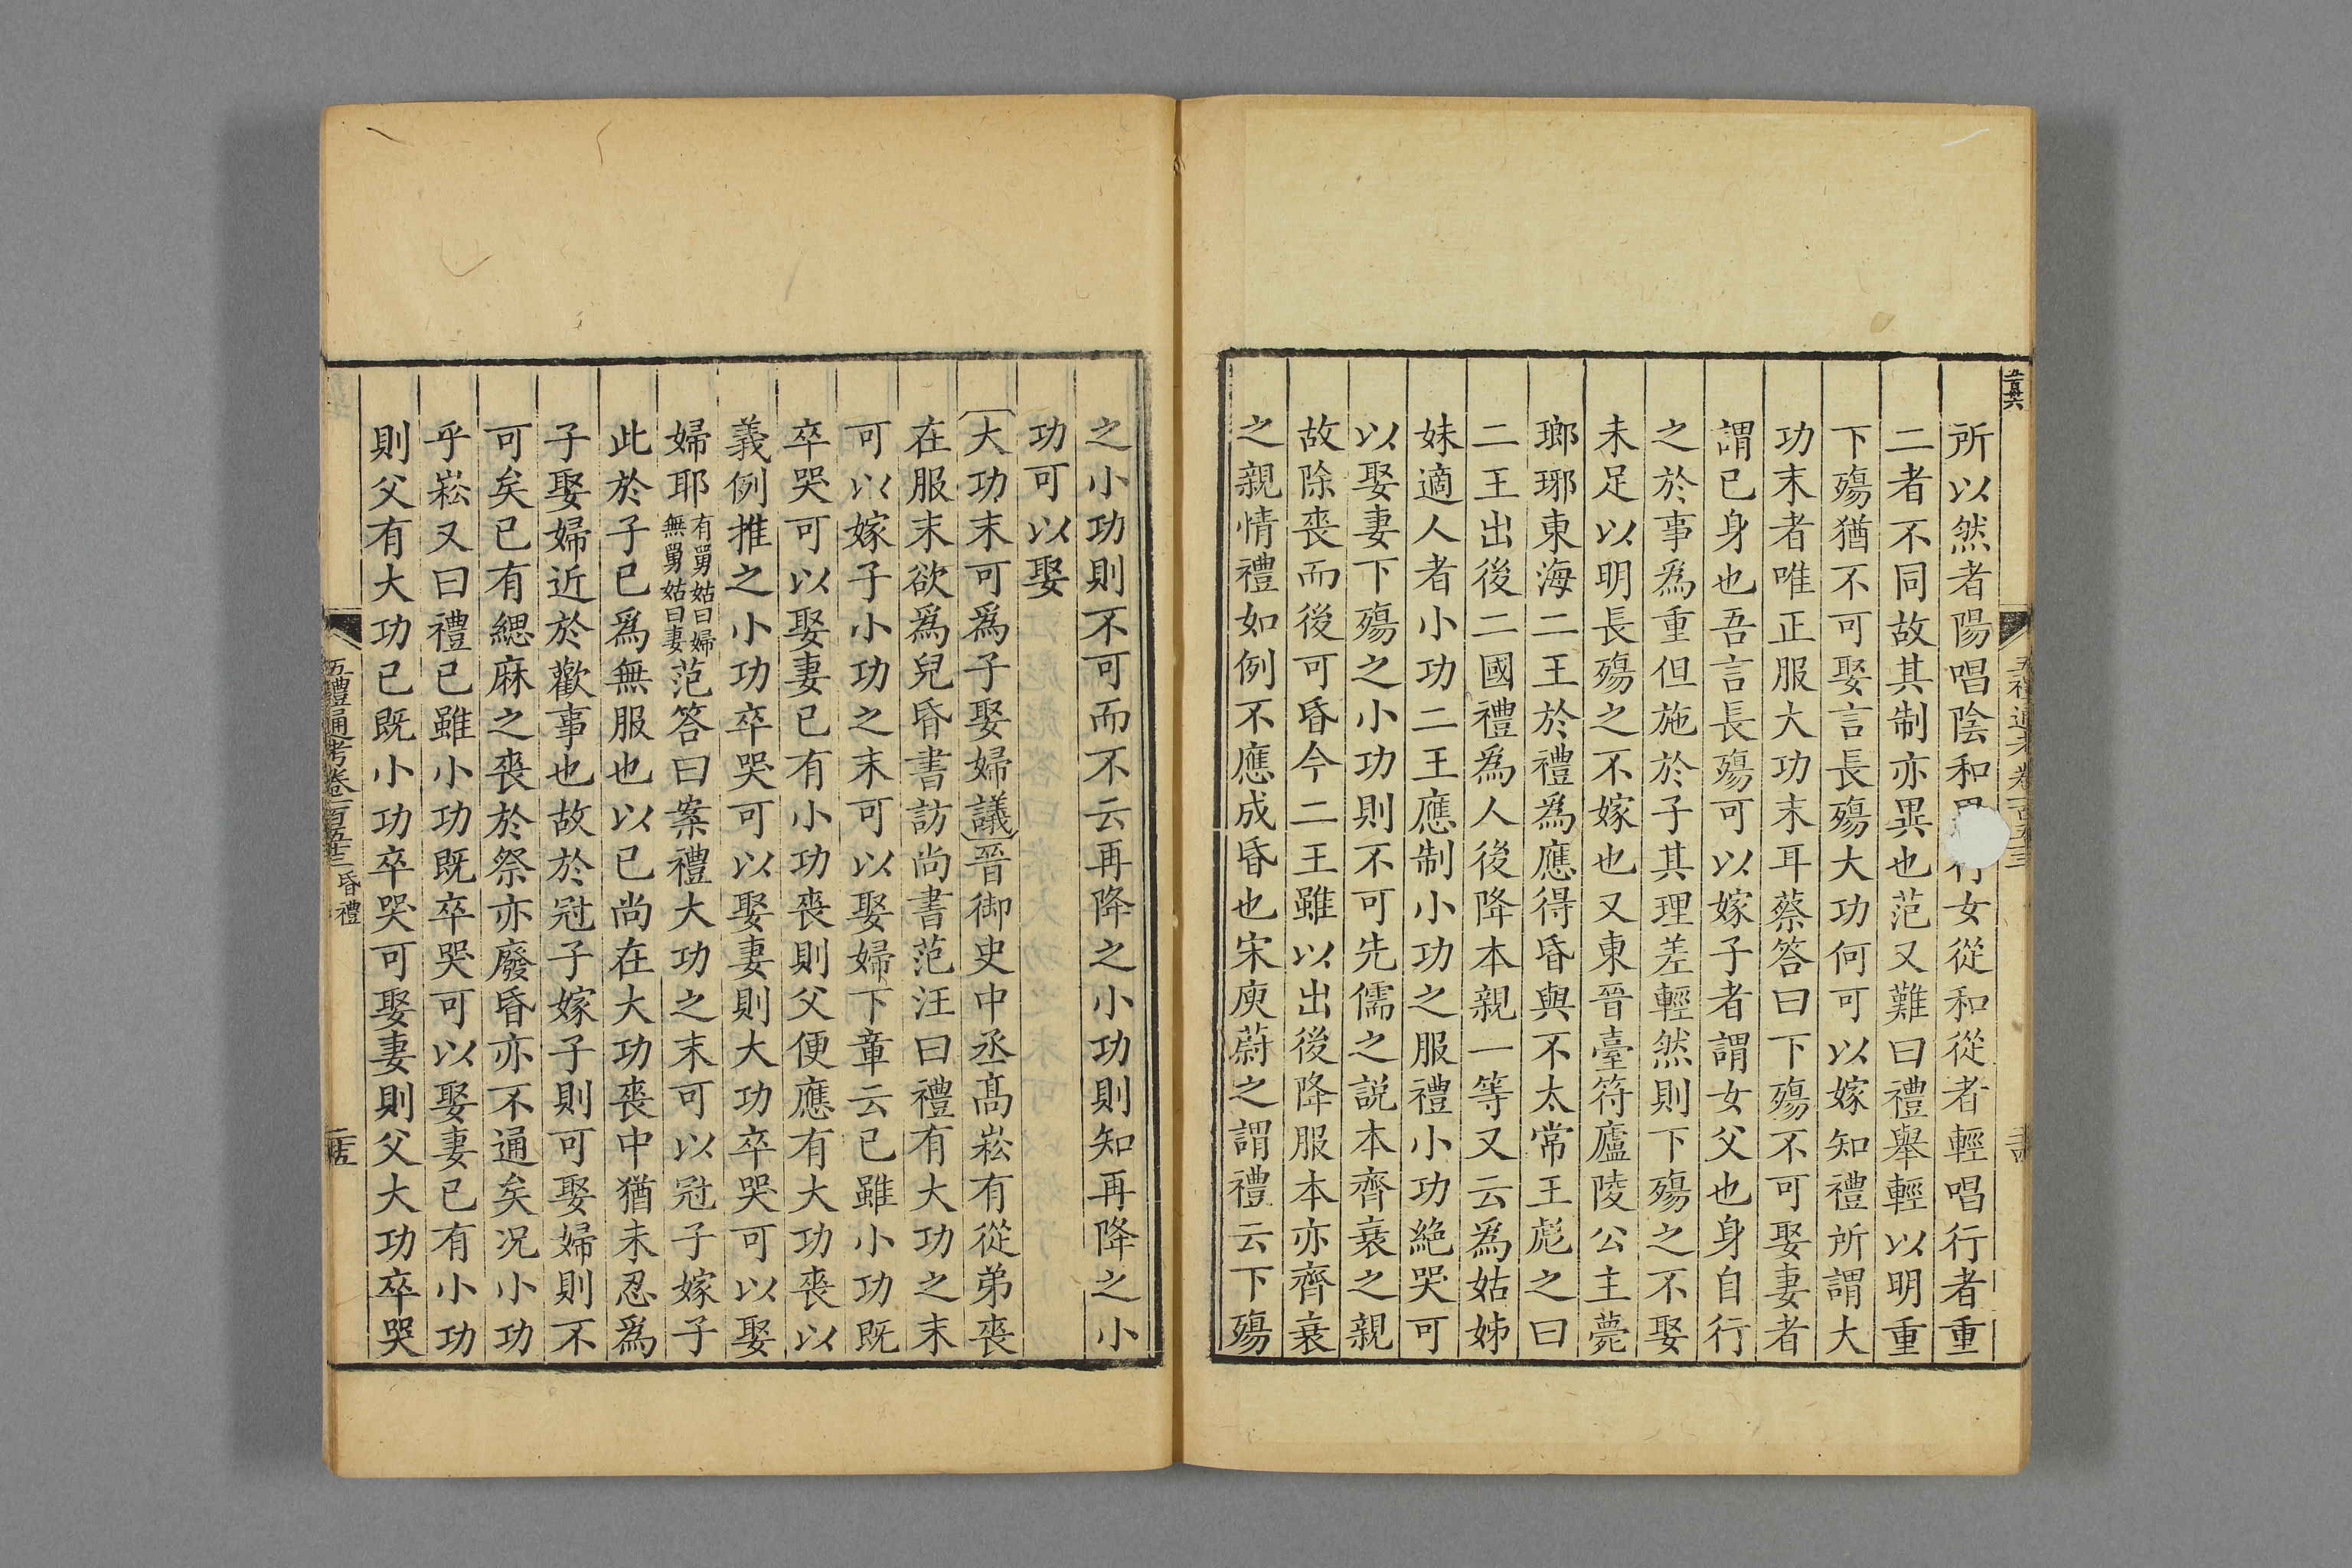 所以然者陽唱陰和行女從和從者輕唱行者重
二者不同故其制亦異也范又難曰禮舉輕以明重
下殤猶不可娶言長殤大功何可以嫁知禮所謂大
功末者唯正服大功末耳蔡答曰下殤不可娶妻者
謂己身也吾言長殤可以嫁子者謂女父也身自行
之於事爲重但施於子其理差輕然則下殤之不娶
未足以明長殤之不嫁也又東晉臺符廬陵公主薨
瑯琊東海二王於禮爲應得昏與不太常王彪之曰
二王出後二國禮爲人後降本親一等又云爲姑姊
妹適人者小功二王應制小功之服禮小功絶哭可
以娶妻下殤之小功則不可先儒之説本齊衰之親
故除喪而後可昏今二王雖以出後降服本亦齊衰
之親情禮如例不應成昏也宋庾蔚之謂禮云下殤
之小功則不可而不云再降之小功則知再降之小
功可以娶
大功末可爲子娶婦議晉御史中丞髙崧有從弟喪
在服末欲爲兒昏書訪尚書范汪曰禮有大功之末
可以嫁子小功之末可以娶婦下章云己雖小功既
卒哭可以娶妻已有小功喪則父便應有大功喪以
義例推之小功卒哭可以娶妻則大功卒哭可以娶
婦耶有舅姑曰婦無舅姑曰妻范答曰案禮大功之末可以冠子嫁子
此於子已爲無服也以已尚在大功喪中猶未忍爲
子娶婦近於歡事也故於冠子嫁子則可娶婦則不
可矣已有緦麻之喪於祭亦廢昏亦不通矣况小功
乎崧又曰禮已雖小功既卒哭可以娶妻已有小功
則父有大功已既小功卒哭可娶妻則父大功卒哭
五禮通考卷一百五十三 昏禮